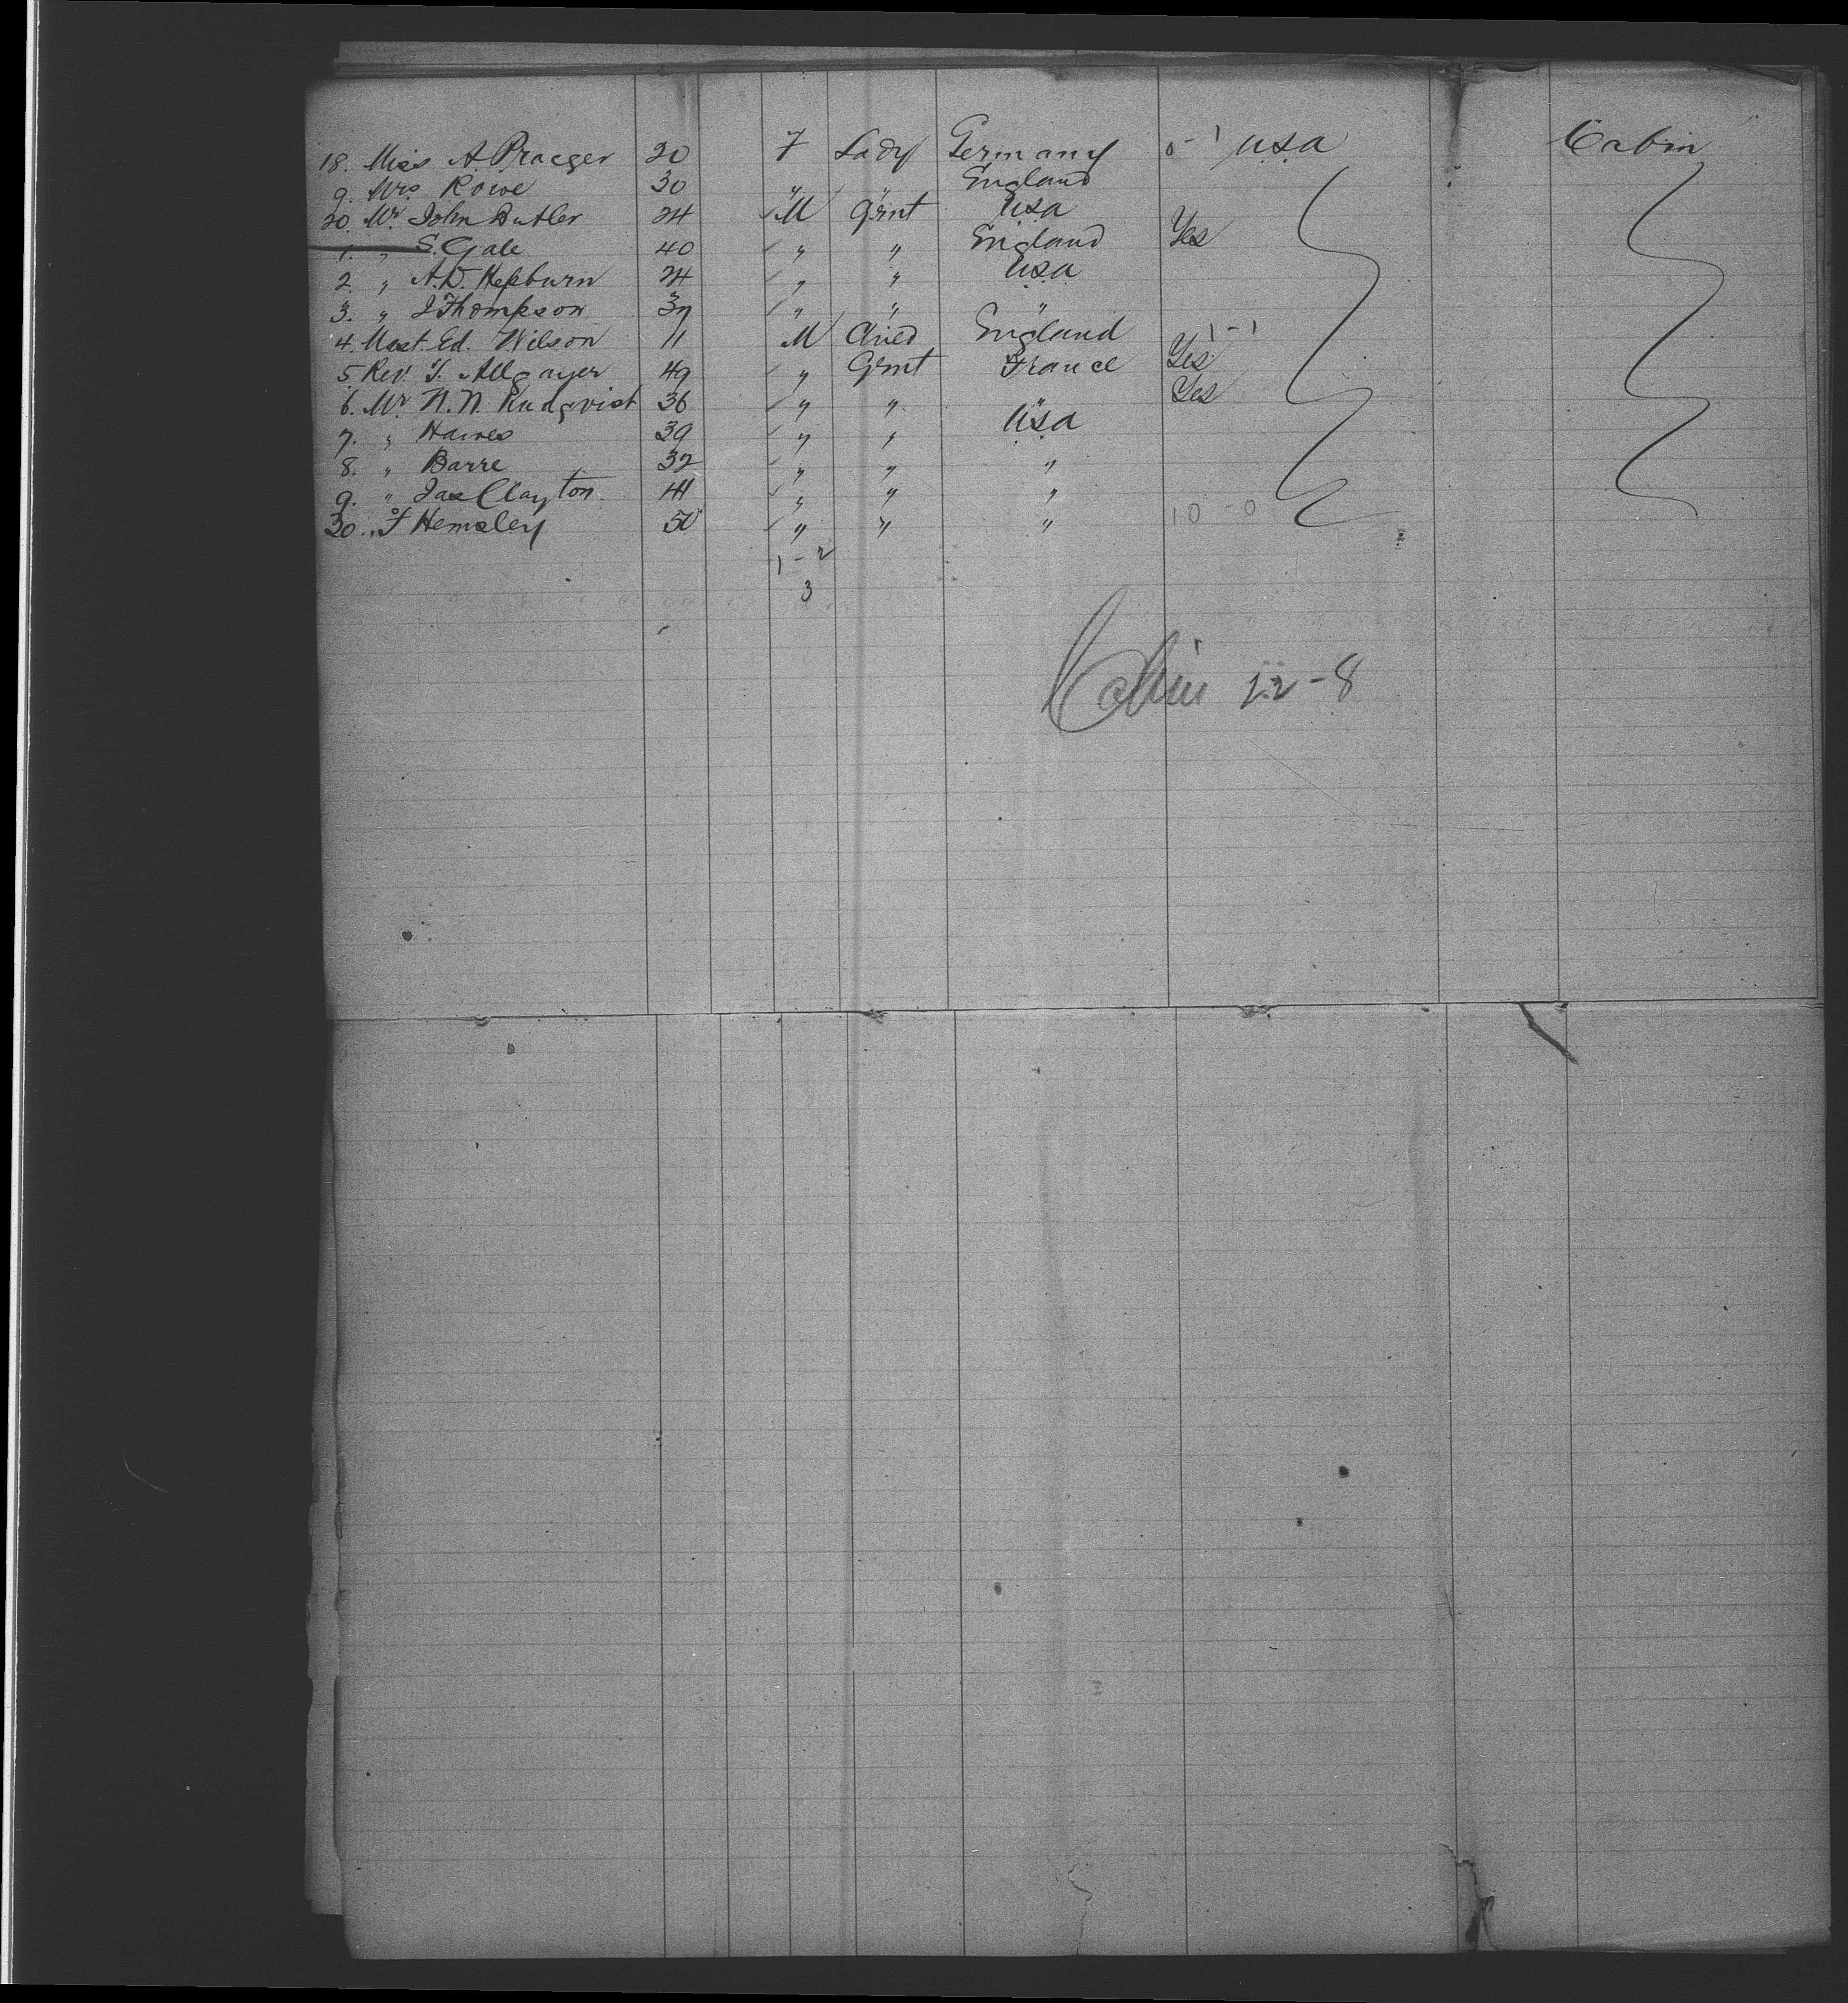 18. Miss A. Praeger 20 F Lady Germany 0-1 USA Cabin
9. Mrs. Rowe 30 " " England
20. Mr. John Butler 24 M Gmt USA
1. " S. Gale 40 " " England Yes
2. " A.D. Hepburn 24 " " USA
3. " J Thompson 37 " " "
4. Mast. Ed. Wilson 11 M Child England 1-1
5. Rev. T. Allgayer 49 " Gmt France Yes
6. Mr. N. N. Rudqvist 36 " " " Yes
7. " Haines 39 " " USA
8. " Barre 32 " " "
9. " Jas Clayton 44 " " "
30. " F Hemsley 50 " " " 10-0
1-2
3
Cabin 22-8